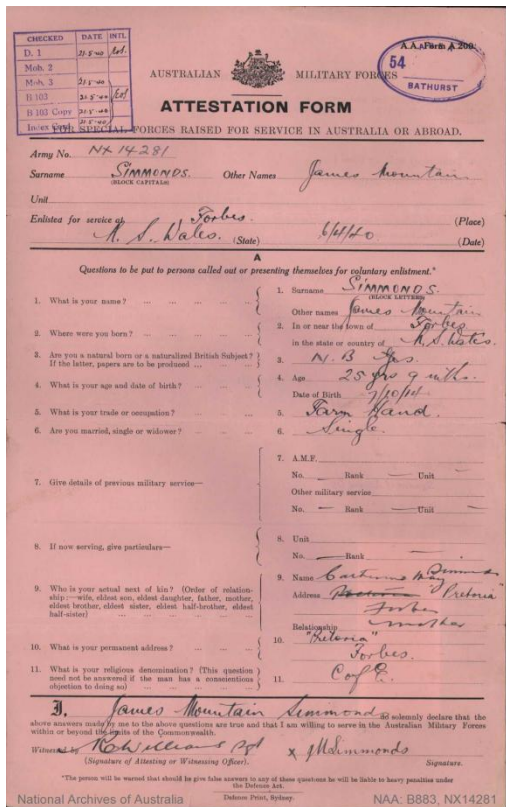 CHECKED DATE INTL
D. 1 23-5-40
Mob. 2
Mob. 3 23-5-40
B 103 23-5-40
B 103 Copy 23-5-40
Index Card 23-5-40
A.A. Form A.200
54
BATHURST
AUSTRALIAN MILITARY FORCES
ATTESTATION FORM
FOR SPECIAL FORCES RAISED FOR SERVICE IN AUSTRALIA OR ABROAD.
Army No. NX14281
Surname SIMMONDS. Other Names James Mountain
(BLOCK CAPITALS)
Unit
Enlisted for service at Forbes. (Place)
N. S. Wales. (State) 6/4/40 (Date)
A
Questions to be put to persons called out or presenting themselves for voluntary enlistment.*
1. What is your name? ... 1. Surname SIMMONDS.
(BLOCK LETTERS)
Other names James Mountain
2. Where were you born? ... 2. In or near the town of Forbes
in the state or country of N. S. Wales.
3. Are you a natural born or a naturalized British Subject? 3. N. B Yes.
If the latter, papers are to be produced ...
4. What is your age and date of birth? ... 4. Age 25 yrs 9 mths.
Date of Birth 7/10/14
5. What is your trade or occupation? ... 5. Farm Hand.
6. Are you married, single or widower? ... 6. Single.
7. Give details of previous military service— 7. A.M.F.
No. — Rank — Unit —
Other military service
No. — Rank — Unit
8. If now serving, give particulars— 8. Unit
No. — Rank —
9. Who is your actual next of kin? (Order of relation- 9. Name Catherine May Simmonds
ship:—wife, eldest son, eldest daughter, father, mother, Address "Pretoria"
eldest brother, eldest sister, eldest half-brother, eldest Forbes
half-sister) Relationship mother
10. What is your permanent address? ... 10. "Pretoria"
Forbes.
11. What is your religious denomination? (This question 11. C of E.
need not be answered if the man has a conscientious
objection to doing so) ...
I, James Mountain Simmonds do solemnly declare that the
above answers made by me to the above questions are true and that I am willing to serve in the Australian Military Forces
within or beyond the limits of the Commonwealth.
Witness Williams Sgt x JMSimmonds
(Signature of Attesting or Witnessing Officer). Signature.
*The person will be warned that should he give false answers to any of these questions he will be liable to heavy penalties under
the Defence Act.
Defence Print, Sydney.
National Archives of Australia NAA: B883, NX14281